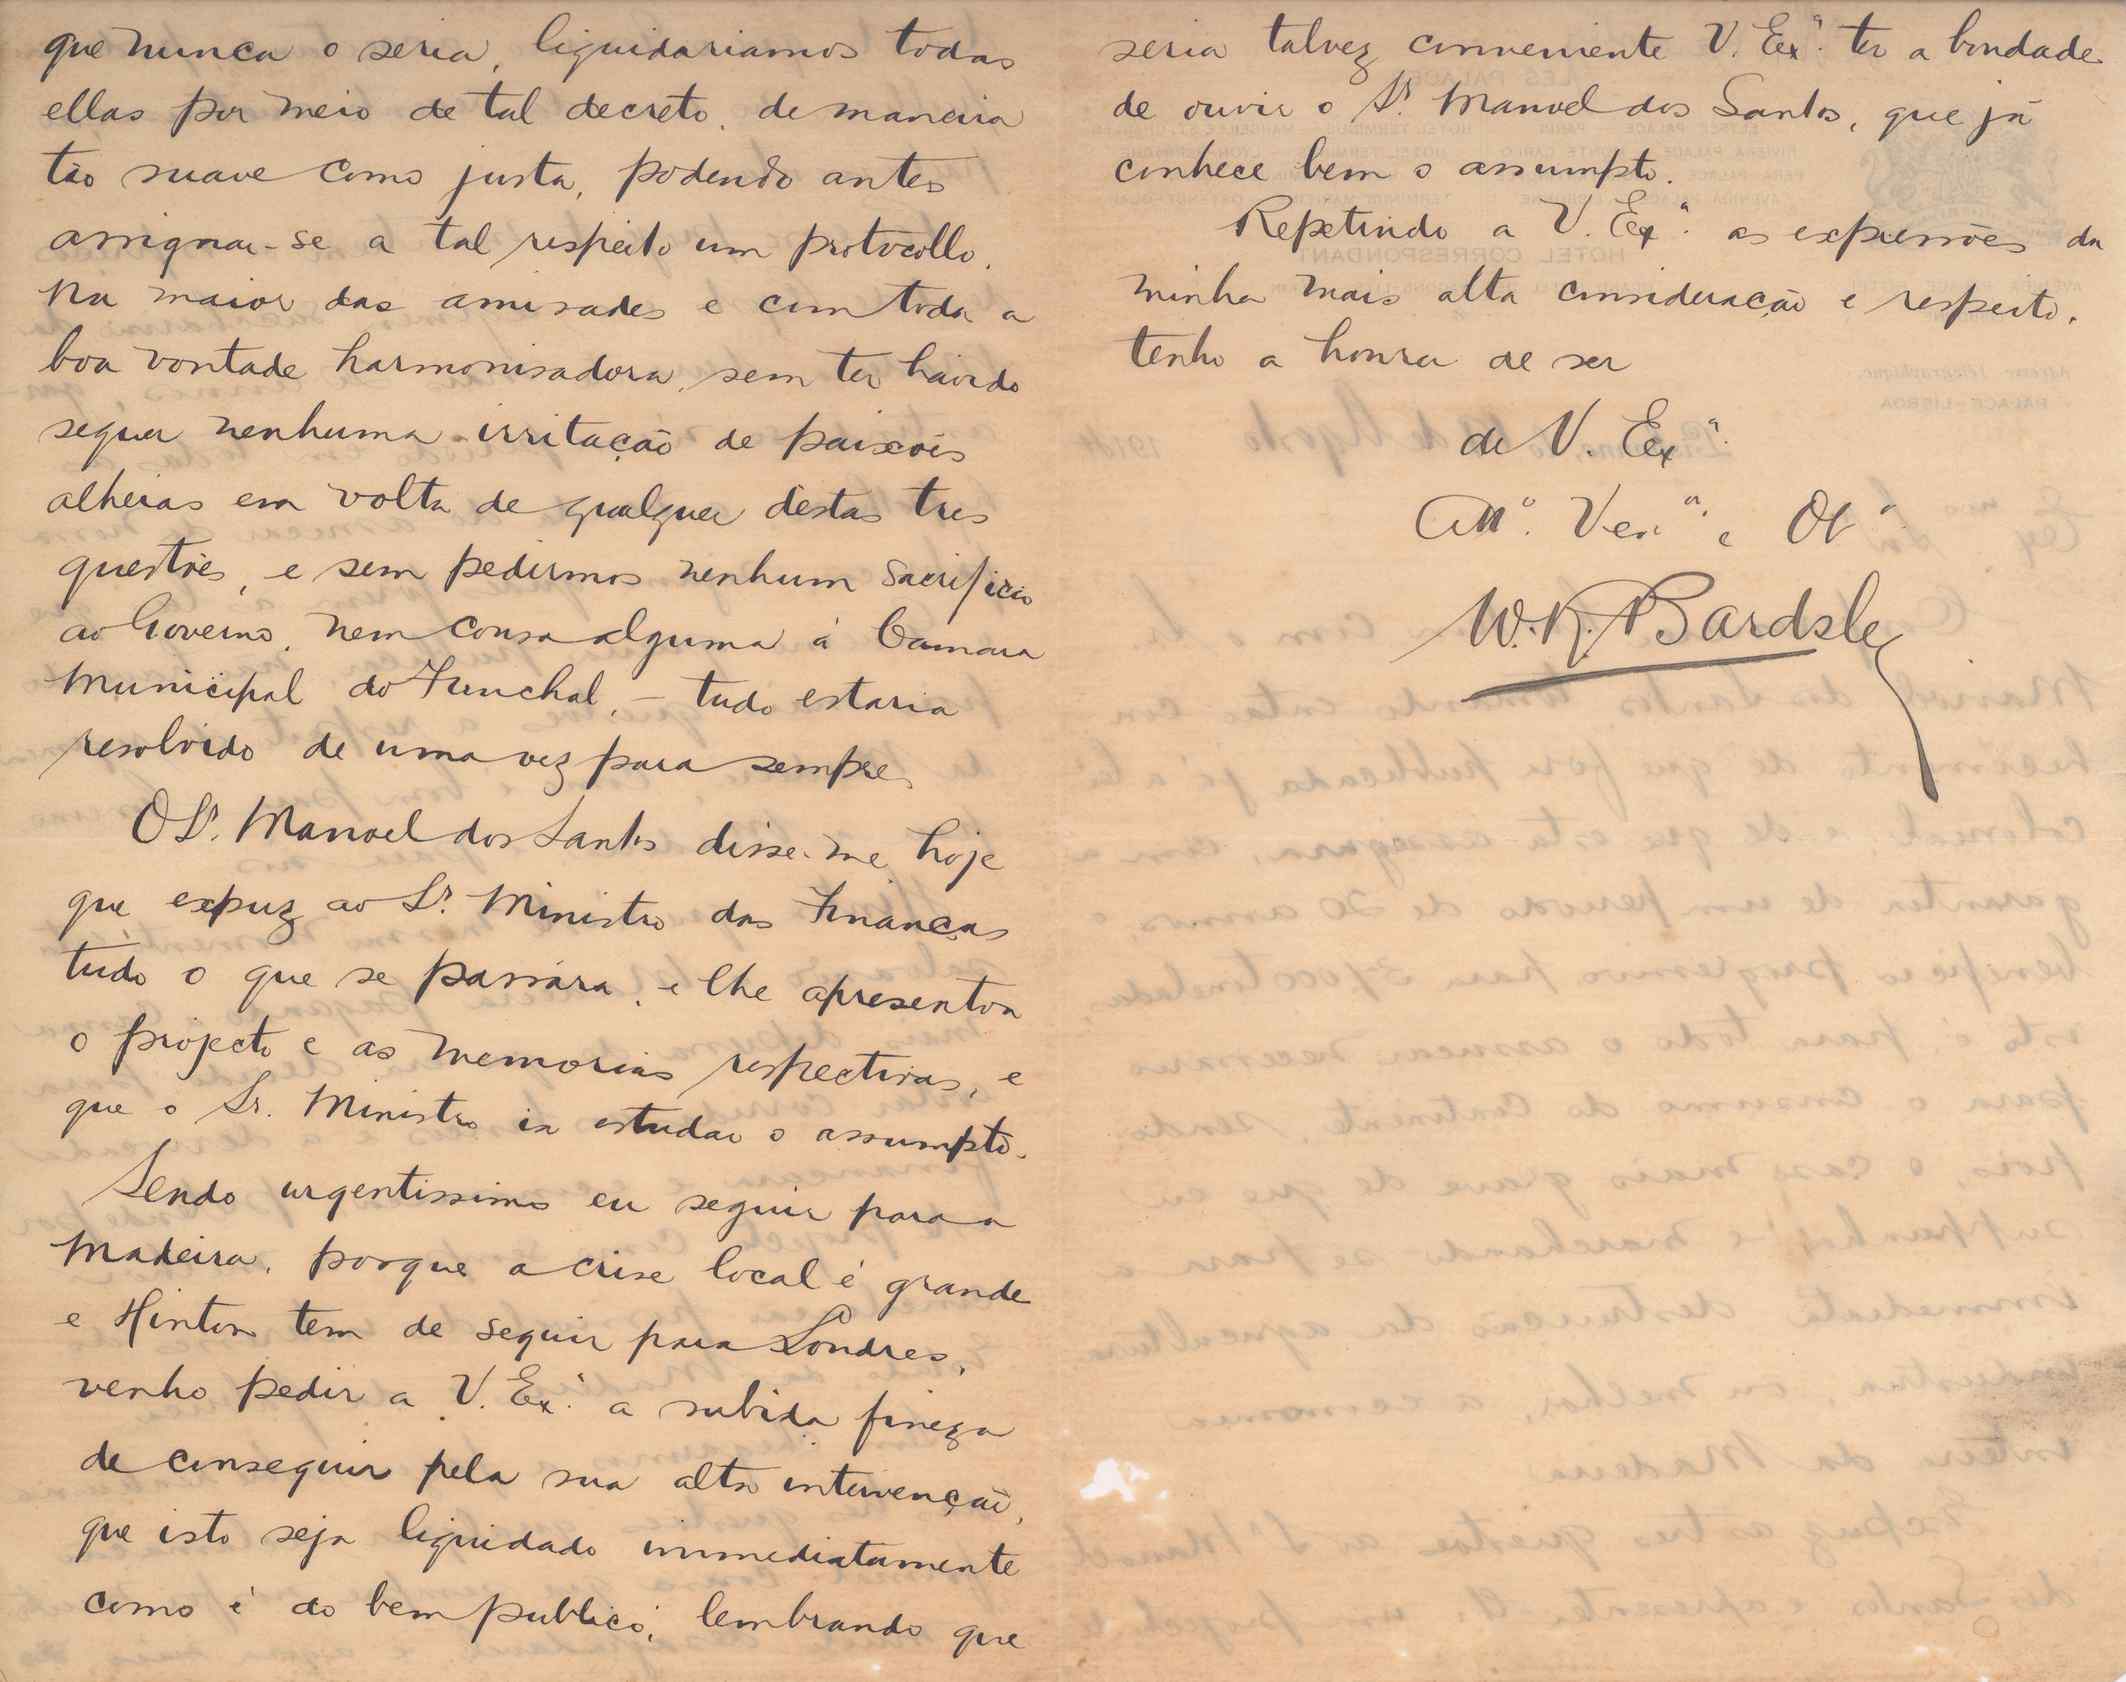 que nunca o seria, liquidariamos todas
ellas por meio de tal decreto, de maneira
tão suave como justa, podendo antes
assignar-se a tal respeito um protocollo.
Na maior das amisades e com toda a
boa vontade harmonisadora, sem ter havido
sequer nenhuma irritação de paixões
alheias em volta de qualquer destas tres
questões, e sem pedirmos nenhum sacrificio
ao Governo, nem cousa alguma á Camara
Municipal do Funchal, - tudo estaria
resolvido de uma vez para sempre.
O Sr. Manoel dos Santos disse-me hoje
que expuz ao Sr. Ministro das Finanças
tudo o que se passára, e lhe apresentou
o projecto e as memorias respectivas, e
que o Sr. Ministro ia estudar o assumpto.
Sendo urgentissimo eu seguir para a
Madeira, porque a crise local é grande
e Hinton tem de seguir para Londres,
venho pedir a V. Exª. a subida fineza
de conseguir pela sua alta intervenção,
que isto seja liquidado immediatamente
como é do bem publico, lembrando que
seria talvez conveniente V. Exª. ter a bondade
de ouvir o Sr. Manoel dos Santos, que já
conhece bem o assumpto.
Repetindo a V. Exª. as expressões da
minha mais alta consideração e respeito,
tenho a honra de ser
de V. Exª.
Attº. Venºr. e Obº.
W. R. Bardsley